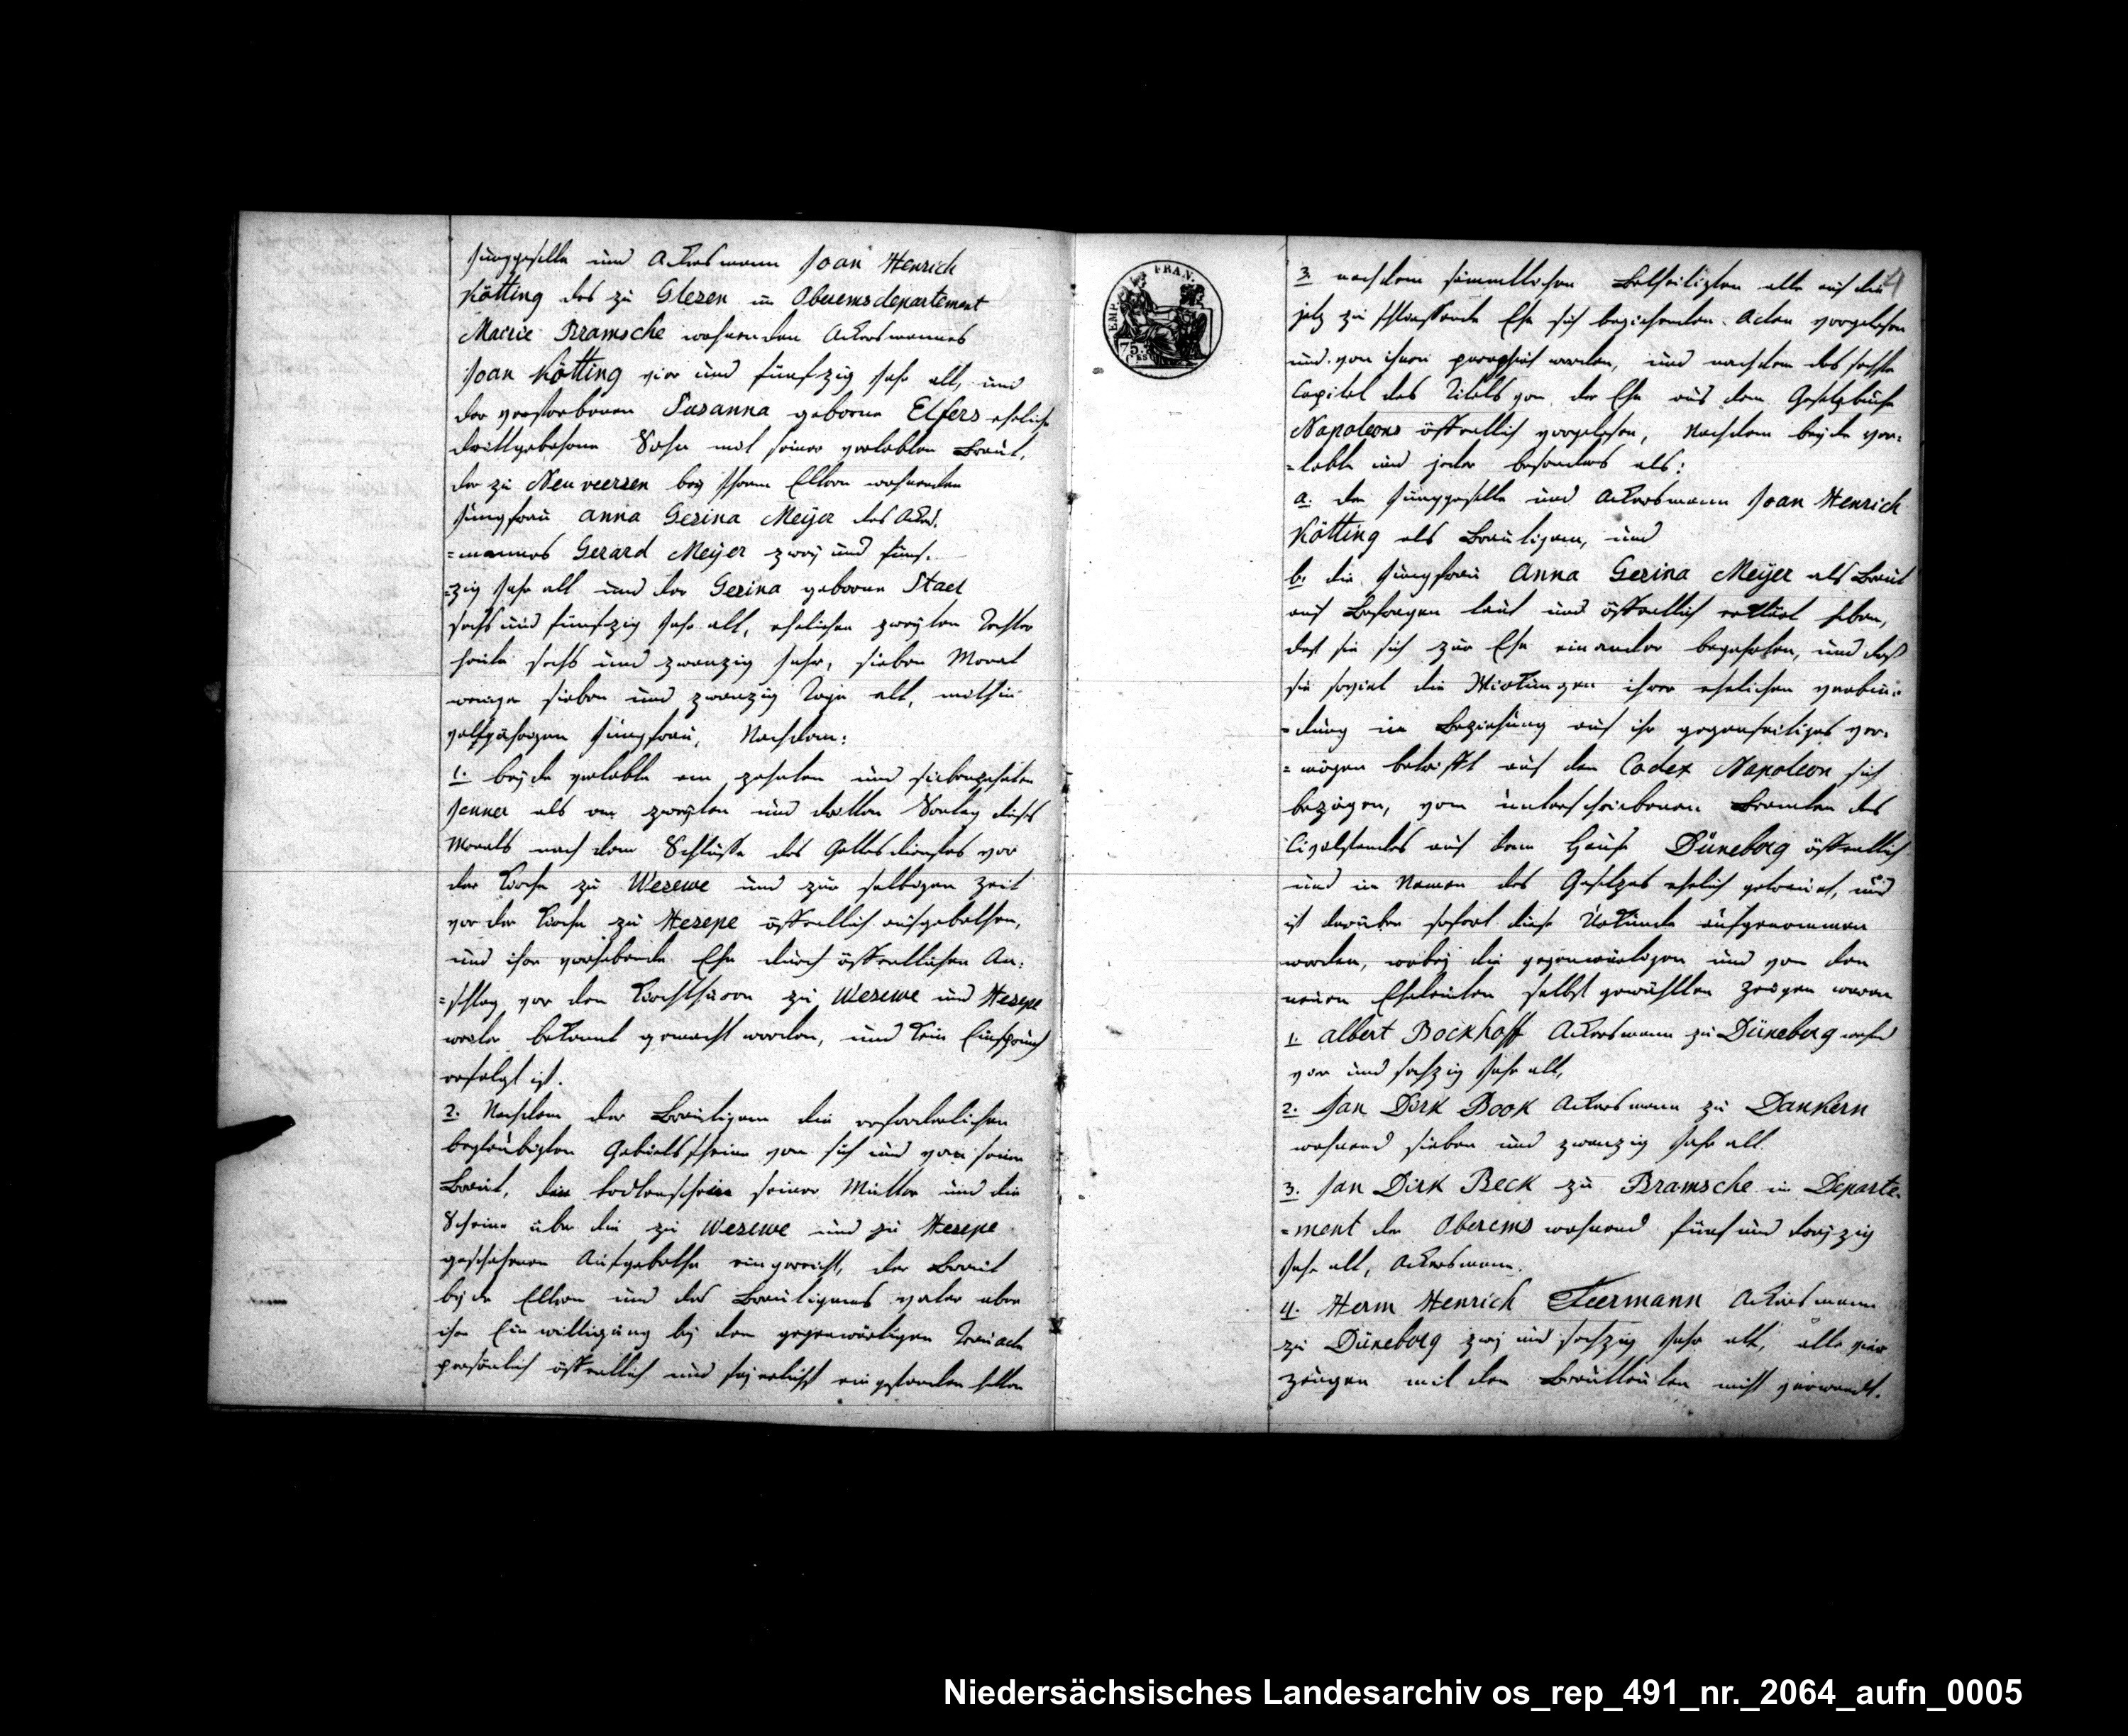 Junggeselle und Ackersmann Joan Henrich
Kötting des zu Glesen im Oberemsdepartement
Mairie Bramsche wohnenden Ackersmannes
Joan Kötting vier und fünfzig Jahr alt, und
der verstorbenen Susanna geborne Elfers eheliche
drittgebohrne Sohn mit seiner verlobten Braut,
der zu Neuveersen bey Ihren Eltern wohnenden
Jungfrau Anna Gesina Meyer des Ackers-
=mannes Gerard Meyer zwey und fünf-
=zig Jahr alt und der Gesina geborne Stael
sechs und fünfzig Jahr alt, ehelichen zweyten Tochter
heute sechs und zwanzig Jahr, sieben Monat
weniger sieben und zwanzig Tage alt, mithin
volljährigen Jungfrau, Nachdem:
1. beyde verlobte am zehnten und siebenzehnten
Jenner als am zweyten und dritten Sontag dieses
Monats nach dem Schlusse des Gottesdienstes vor
der Kirche zu Wesewe und zur selbigen Zeit
vor der Kirche zu Hesepe öffentlich aufgebothen,
und ihre vorhabende Ehe durch öffentlichen An-
=schlag vor den Kirchthüren zu Wesewe und Hesepe
weiter bekannt gemacht worden, und kein Einspruch
erfolgt ist.
2. Nachdem der Bräutigam die erforderlichen
beglaubigten Geburtsscheine von sich und von seiner
Braut, den Todtenschein seiner Mutter und die
Scheine über die zu Wesewe und zu Hesepe
geschehenen Aufgebothe eingereicht, der Braut
beyde Eltern und des Bräutigams Vater aber
ihre Einwilligung bey dem gegenwärtigen Trauact
persönlich öffentlich und feyerlichst eingestanden hatten
EMPIRE FRAN.
75
4
3. nachdem sämmtlichen Betheiligten alle auf die
jetz zu schliessende Ehe sich beziehenden Acten vorgelesen
und von ihnen paraphirt worden, und nachdem das sechste
Capitel des Titels von der Ehe aus dem Gesetzbuche
Napoleons öffentlich vorgelesen, Nachdem beyde ver-
=lobte und jeder besonders als:
a. der Junggeselle und Ackersmann Joan Henrich
Kötting als Bräutigam, und
b. die Jungfrau Anna Gesina Meyer als Braut
auf Befragen laut und öffentlich erklärt haben,
daß sie sich zur Ehe einander begehrten, und daß
sie soviel die Wirkungen ihrer ehelichen Verbin-
=dung in Beziehung auf ihr gegenseitiges Ver-
=mögen betrifft auf den Codex Napoleon sich
bezögen, vom unterschriebenen Beamten des
Civilstandes auf dem Hause Düneborg öffentlich
und im Namen des Gesetzes ehelich getrauet, und
ist darüber sofort diese Urkunde aufgenommen
worden, wobey die gegenwärtigen und von den
neuen Eheleuten selbst gewählten Zeugen waren
1. Albert Bockhoff Ackersmann zu Düneberg wohnend
vier und sechzig Jahr alt,
2. Jan Dirk Book Ackersmann zu Dankern
wohnend sieben und zwanzig Jahr alt
3. Jan Dirk Beck zu Bramsche im Departe-
=ment der Oberems wohnend fünf und dreyzig
Jahr alt, Ackersmann.
4. Herm Henrich Teermann Ackersmann
zu Düneborg zwey und sechzig Jahr alt, alle vier
Zeugen mit den Brautleuten nicht verwandt.
Niedersächsisches Landesarchiv os_rep_491_nr._2064_aufn_0005